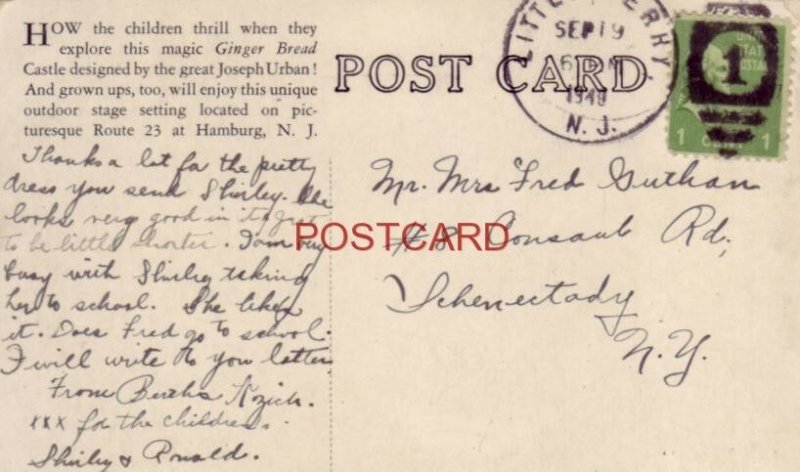 HOW the children thrill when they
explore this magic Ginger Bread
Castle designed by the great Joseph Urban!
And grown ups, too, will enjoy this unique
outdoor stage setting located on pic-
turesque Route 23 at Hamburg, N. J.
POST CARD
LITTLE FERRY,
SEP 19
1949
N. J.
1
1 1
Thanks a lot for the pretty
dress you send Shirley. She
looks very good in it just
to be little shorter. I am buy
busy with Shirley taking
her to school. She likes
it. Does Fred go to school.
I will write to you latter
From Bertha
xxx for the children.
Shirley & Ronald.
Mr. Mrs Fred Guthan
#8 Consaul Rd,
Schenectady
N. Y.
POSTCARD